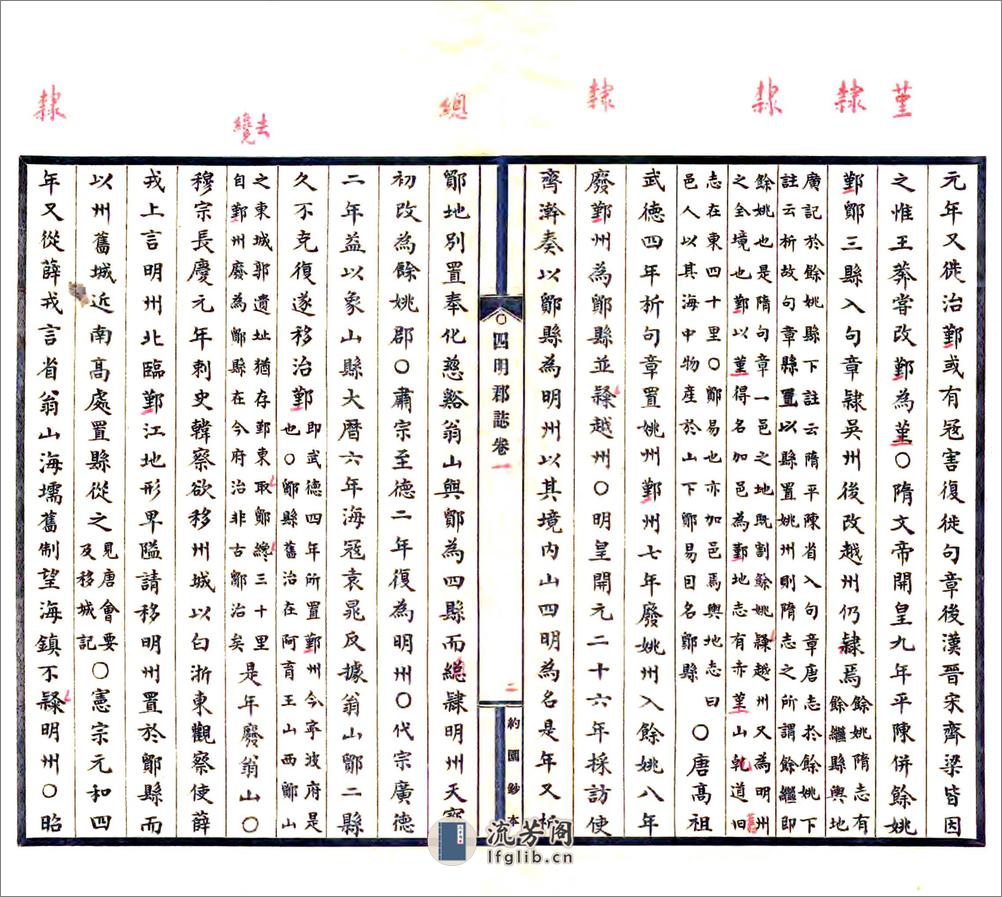 堇
隸
隸
隸
總
去纜
隸
元年又徙治鄞或有冦害復徙句章後漢晉宋齊梁皆因
之惟王莽嘗改鄞為堇〇隋文帝開皇九年平陳併餘姚
鄞鄮三縣入句章隸吳州後改越州仍隸焉
餘姚隋志有
餘繼縣輿地
廣記於餘姚縣下註云隋平陳省入句章唐志於餘姚下
註云析故句章縣置以縣置姚州則隋志之所謂餘繼即
餘姚也是隋句章一邑之地既割餘姚隸越州又為明州
之全境也鄞以堇得名加邑為鄞地志有赤堇山乾道旧
舊
志在東四十里〇鄮易也亦加邑焉輿地志曰
邑人以其海中物產於山下鄮易因名鄮縣
〇唐高祖
武德四年析句章置姚州鄞州七年廢姚州入餘姚八年
廢鄞州為鄮縣並隸越州〇明皇開元二十六年採訪使
齊澣奏以鄮縣為明州以其境内山四明為名是年又析
〇四明郡誌卷一
二
約園鈔本
鄮地別置奉化慈谿翁山與鄮為四縣而總隸明州天寶
初改為餘姚郡〇肅宗至德二年復為明州〇代宗廣德
二年益以象山縣大曆六年海冦袁晁反據翁山鄮二縣
久不克復遂移治鄞
即武德四年所置鄞州今寧波府是
也〇鄮縣舊治在阿育王山西鄮山
之東城郭遺址猶存鄞東取鄮總三十里
自鄞州廢為鄮縣在今府治非古鄮治矣
是年廢翁山〇
穆宗長慶元年刺史韓察欲移州城以白浙東觀察使薛
戎上言明州北臨鄞江地形卑隘請移明州置於鄮縣而
以州舊城近南高處置縣從之
見唐會要
及移城記
〇憲宗元和四
年又從薛戎言省翁山海壖舊制望海鎮不隸明州〇昭
流芳阁
lfglib.cn